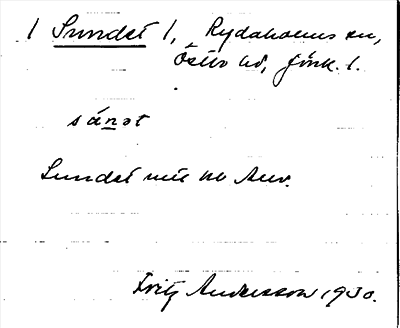 1 Sundet 1, Rydaholms sn,
Östbo hd, Jönk. l.
sánət
Sundet
Fritz Andersson 1930.